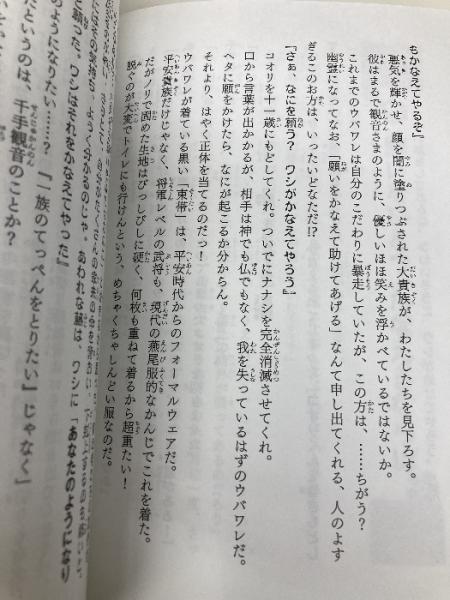 もかなえてやるぞ』
悪気を輝かせ、顔を闇に塗りつぶされた大貴族が、わたしたちを見下ろす。
彼はまるで観音さまのように、優しいほほ笑みを浮かべているではないか。
これまでのウバワレは自分のこだわりに暴走していたが、この方は、……ちがう？
幽霊になってなお、「願いをかなえて助けてあげる」なんて申し出てくれる、人のよす
ぎるこのお方は、いったいどなただ!?
『さぁ、なにを願う？　ワシがかなえてやろう』
コオリを十一歳にもどしてくれ。ついでにナナシを完全消滅させてくれ。
口から言葉が出かかるが、相手は神でも仏でもなく、我を失っているはずのウバワレだ。
ヘタに願をかけたら、なにが起こるか分からん。
それより、はやく正体を当てるのだっ！
ウバワレが着ている黒い「束帯」は、平安時代からのフォーマルウェアだ。
平安貴族だけじゃなく、将軍レベルの武将も、現代の燕尾服的なかんじでこれを着た。
だがノリで固めた生地はびっしびしに硬く、何枚も重ねて着るから超重たい！
脱ぐのが大変でトイレにも行けんという、めちゃくちゃしんどい服なのだ。
のようになりたい……？　「一族のてっぺんをとりたい」じゃなく
たいのは、千手観音のことか？
と願った。ワシはそれをかなえてやった』
はその気持ち、よっく分かるのじゃ。あわれな墓は、ワシに『あなたのようになり